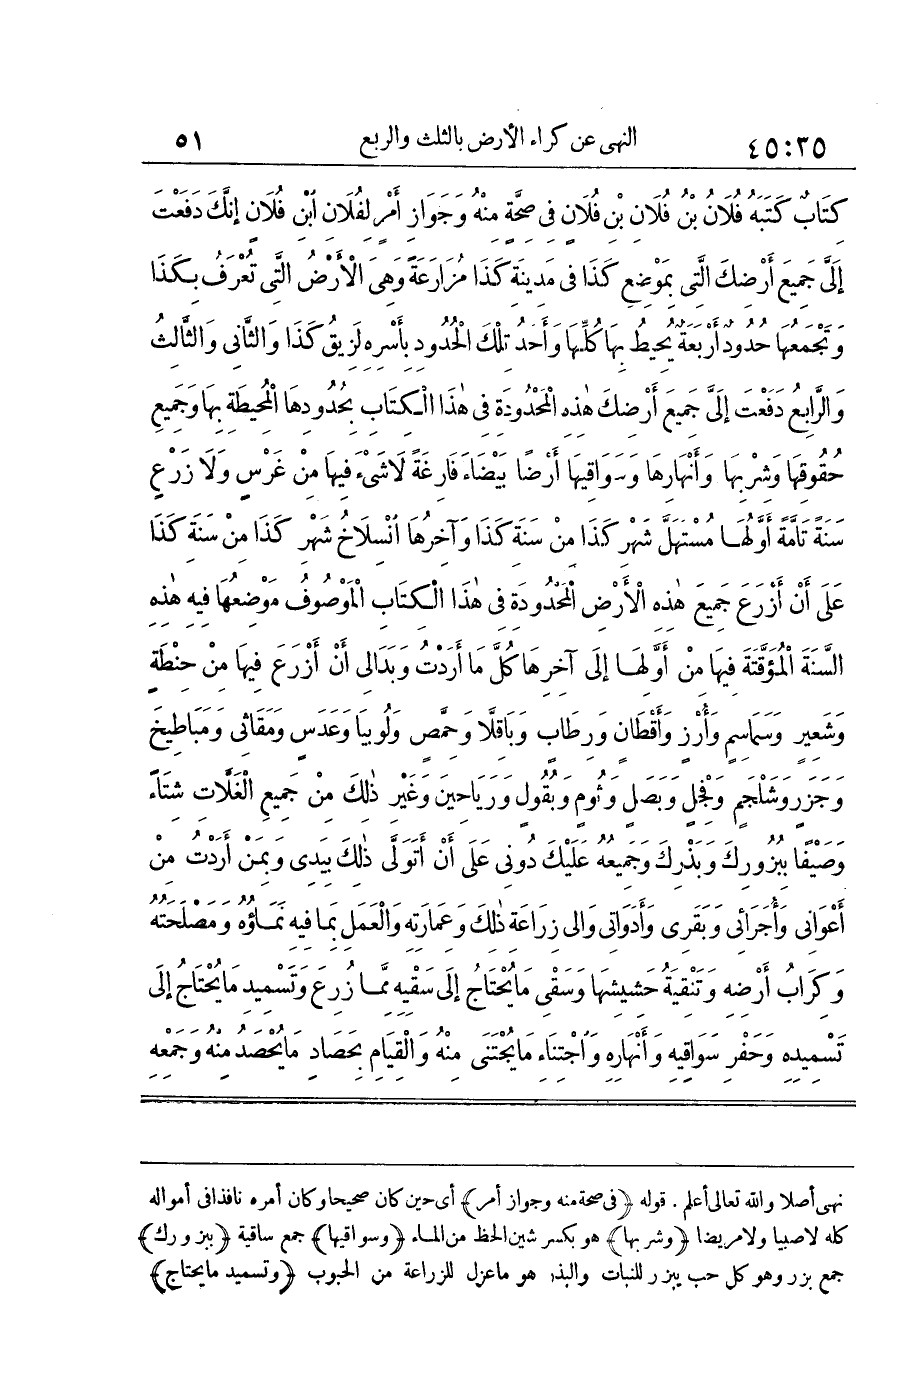 ٤٥:٣٥ النهى عن كراء الأرض بالثلث والربع ٥١
كِتَابٌ كَتَبَهُ فُلَانُ بْنُ فُلَانِ بْنِ فُلَانٍ فِى صِحَّةٍ مِنْهُ وَجَوَازِ أَمْرٍ لِفُلَانِ ابْنِ فُلَانٍ إِنَّكَ دَفَعْتَ
إِلَىَّ جَمِيعَ أَرْضِكَ الَّتِى بِمَوْضِعِ كَذَا فِى مَدِينَةِ كَذَا مُزَارَعَةً وَهِىَ الْأَرْضُ الَّتِى تُعْرَفُ بِكَذَا
وَتَجْمَعُهَا حُدُودٌ أَرْبَعَةٌ يُحِيطُ بِهَا كُلِّهَا وَأَحَدُ تِلْكَ الْحُدُودِ بِأَسْرِهِ لَزِيقُ كَذَا وَالثَّانِى وَالثَّالِثُ
وَالرَّابِعُ دَفَعْتَ إِلَىَّ جَمِيعَ أَرْضِكَ هٰذِهِ الْمَحْدُودَةِ فِى هٰذَا الْكِتَابِ بِحُدُودِهَا الْمُحِيطَةِ بِهَا وَجَمِيعِ
حُقُوقِهَا وَشِرْبِهَا وَأَنْهَارِهَا وَسَوَاقِيهَا أَرْضًا بَيْضَاءَ فَارِغَةً لَاشَىْءَ فِيهَا مِنْ غَرْسٍ وَلَا زَرْعٍ
سَنَةً تَامَّةً أَوَّلُهَا مُسْتَهَلَّ شَهْرِ كَذَا مِنْ سَنَةِ كَذَا وَآخِرُهَا انْسِلَاخُ شَهْرِ كَذَا مِنْ سَنَةِ كَذَا
عَلَى أَنْ أَزْرَعَ جَمِيعَ هٰذِهِ الْأَرْضِ الْمَحْدُودَةِ فِى هٰذَا الْكِتَابِ الْمَوْصُوفُ مَوْضِعُهَا فِيهِ هٰذِهِ
السَّنَةَ الْمُؤَقَّتَةَ فِيهَا مِنْ أَوَّلِهَا إِلَى آخِرِهَا كُلَّ مَا أَرَدْتُ وَبَدَالِى أَنْ أَزْرَعَ فِيهَا مِنْ حِنْطَةٍ
وَشَعِيرٍ وَسَمَاسِمَ وَأُرْزٍ وَأَقْطَانٍ وَرِطَابٍ وَبَاقِلَّا وَحِمَّصٍ وَلُوبِيَا وَعَدَسٍ وَمَقَاثِى وَمَبَاطِيخَ
وَجَزَرٍ وَشَلْجَمٍ وَفُجْلٍ وَبَصَلٍ وَثُومٍ وَبُقُولٍ وَرَيَاحِينَ وَغَيْرِ ذٰلِكَ مِنْ جَمِيعِ الْغَلَّاتِ شِتَاءً
وَصَيْفًا بِبُزُورِكَ وَبَذْرِكَ وَجَمِيعُهُ عَلَيْكَ دُونِى عَلَى أَنْ أَتَوَلَّى ذٰلِكَ بِيَدِى وَبِمَنْ أَرَدْتُ مِنْ
أَعْوَانِى وَأُجَرَائِى وَبَقَرِى وَأَدَوَاتِى وَإِلَى زِرَاعَةِ ذٰلِكَ وَعِمَارَتِهِ وَالْعَمَلِ بِمَا فِيهِ نَمَاؤُهُ وَمَصْلَحَتُهُ
وَكِرَابُ أَرْضِهِ وَتَنْقِيَةُ حَشِيشِهَا وَسَقْىِ مَا يُحْتَاجُ إِلَى سَقْيِهِ مِمَّا زُرِعَ وَتَسْمِيدِ مَا يُحْتَاجُ إِلَى
تَسْمِيدِهِ وَحَفْرِ سَوَاقِيهِ وَأَنْهَارِهِ وَاجْتِنَاءِ مَا يُجْتَنَى مِنْهُ وَالْقِيَامِ بِحَصَادِ مَا يُحْصَدُ مِنْهُ وَجَمْعِهِ
نهى أصلا والله تعالى أعلم. قوله ﴿فى صحة منه وجواز أمر﴾ أى حين كان صحيحا وكان أمره نافذا فى أمواله
كله لاصبيا ولا مريضا ﴿وشربها﴾ هو بكسر شين الحظ من الماء ﴿وسواقيها﴾ جمع ساقية ﴿ببزورك﴾
جمع بزر وهو كل حب يبزر للنبات والبذر هو ماعزل للزراعة من الحبوب ﴿وتسميد مايحتاج﴾